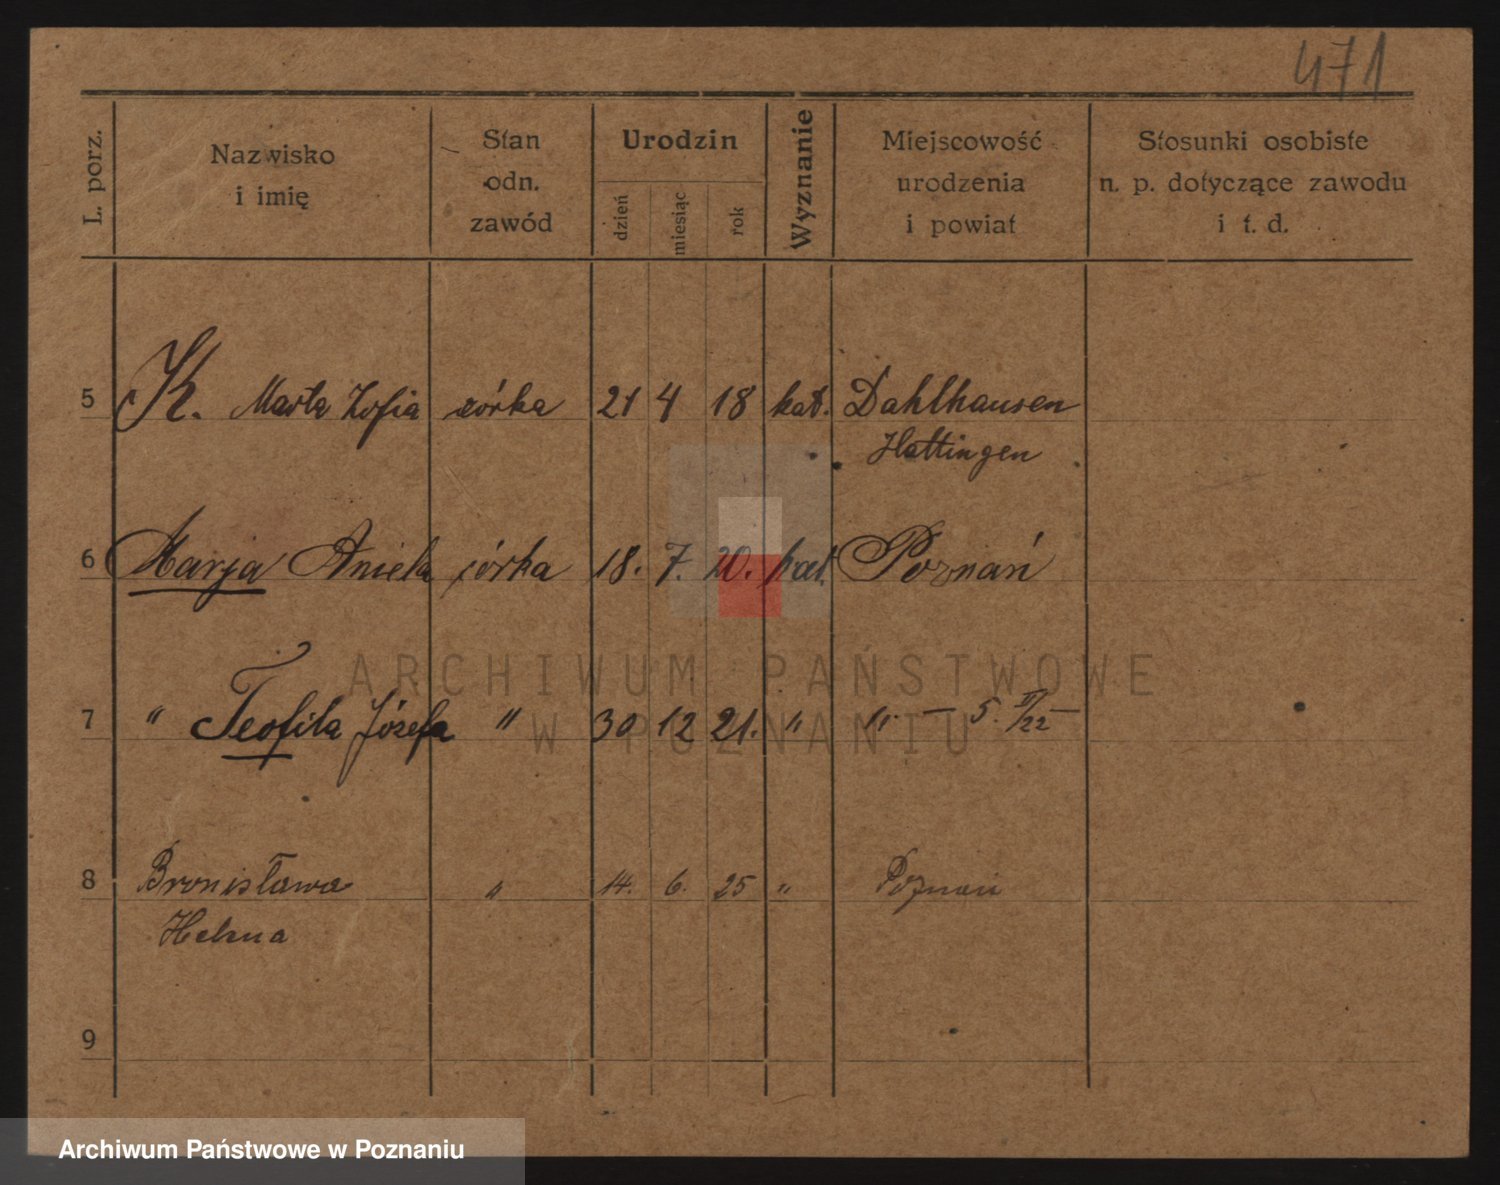 471
L. porz.
Nazwisko
i imię
Stan
odn.
zawód
Urodzin
dzień
miesiąc
rok
Wyznanie
Miejscowość
urodzenia
i powiat
Stosunki osobiste
n. p. dotyczące zawodu
i t. d.
5 K. Marta Zofia córka 21 4 18 kat. Dahlhausen
Hattingen
6 Marja Aniela córka 18. 7. 20. kat. Poznań
7 " Teofila Józefa " 30 12 21. " " — 5. II/22 —
8 Bronisława " 14. 6. 25 " Poznań
Helena
9
ARCHIWUM PAŃSTWOWE
W POZNANIU
Archiwum Państwowe w Poznaniu